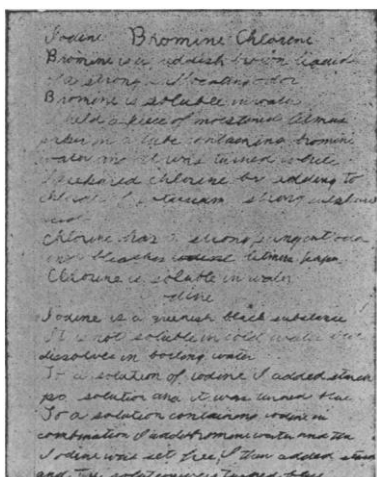 Iodine Bromine Chlorine
Bromine is a reddish brown liquid
a strong suffocating odor
Bromine is soluble in water
held a piece of moistened litmus
paper in a tube containing bromine
water and it was turned white
I prepared chlorine by adding to
strong
Chlorine has a strong pungent odor
and bleaches litmus paper
Chlorine is soluble in water
Iodine is a black substance
It is not soluble in cold water but
dissolves in boiling water
To a solution of iodine I added starch
solution and it was turned blue
To a solution containing iodine in
combination I added bromine water and the
Iodine was set free, I then added starch
and the solution was turned blue